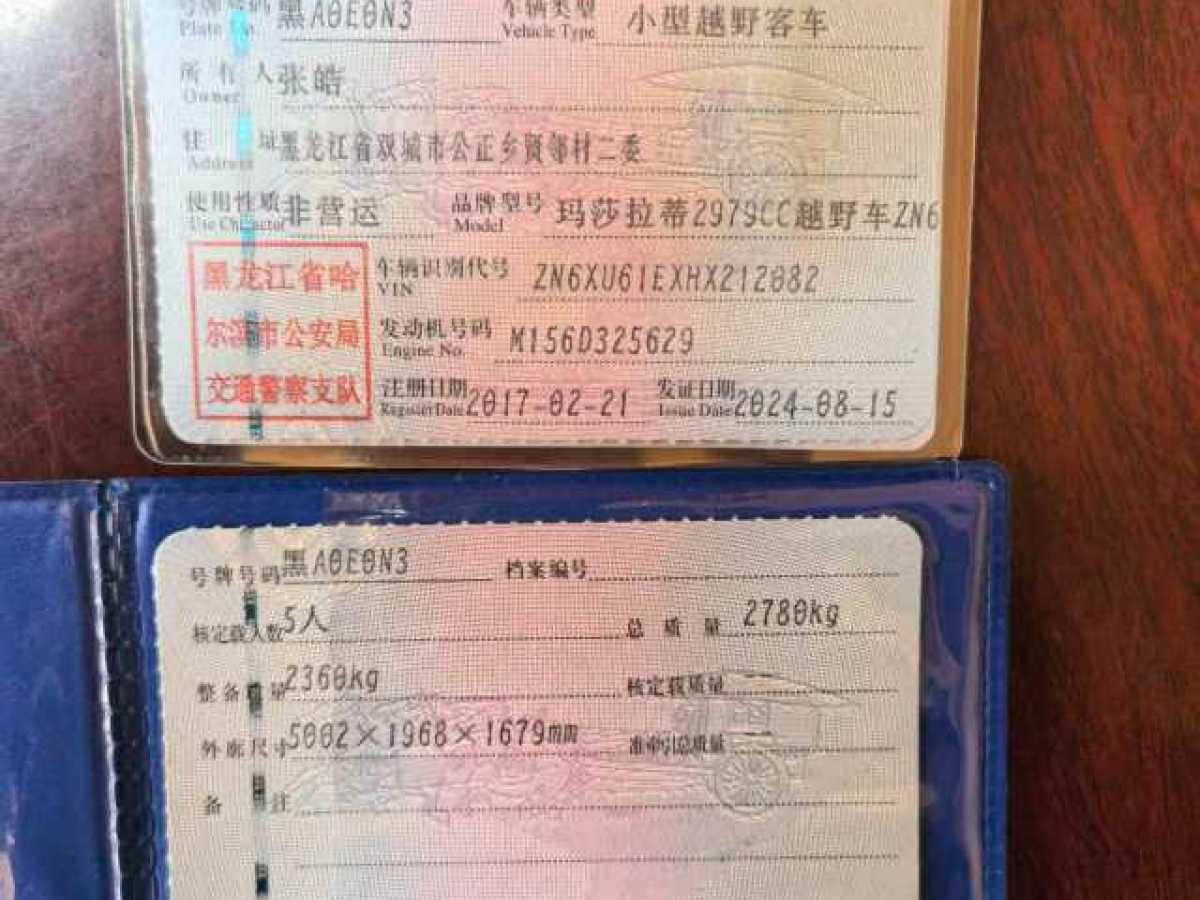 号牌号码 黑A0E0N3 车辆类型 小型越野客车
Plate No. Vehicle Type
所有人 张皓
Owner
住址 黑龙江省双城市公正乡贤邻村二委
Address
使用性质 非营运 品牌型号 玛莎拉蒂2979CC越野车ZN6
Use Character Model
黑龙江省哈尔滨市公安局交通警察支队
车辆识别代号 ZN6XU61EXHX212082
VIN
发动机号码 M156D325629
Engine No.
注册日期 2017-02-21 发证日期 2024-08-15
Register Date Issue Date
号牌号码 黑A0E0N3 档案编号
核定载人数 5人 总质量 2780kg
整备质量 2360kg 核定载质量
外廓尺寸 5002×1968×1679mm 准牵引总质量
备注